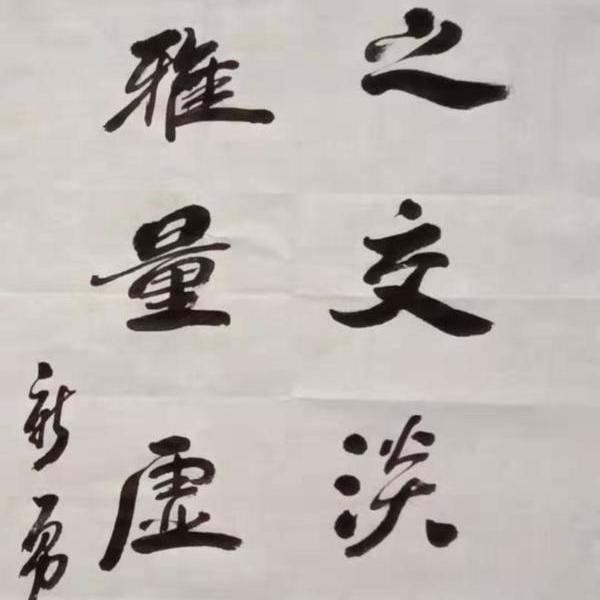 之交淡
雅量虚
新勇